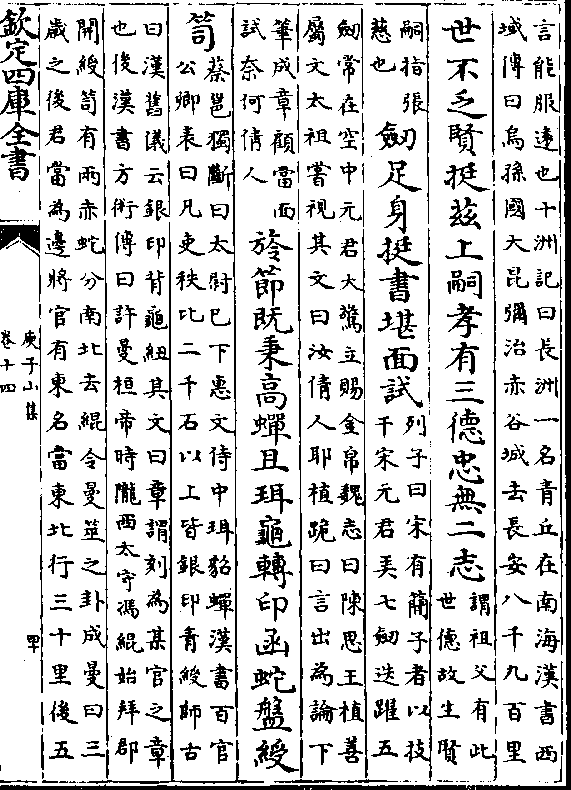 言能服遠也十洲記曰長洲一名青丘在南海漢書西
域傳曰烏孫國大昆彌治赤谷城去長安八千九百里
世不乏賢挺兹上嗣孝有三德忠無二志
謂祖父有此
世德故生賢
嗣指張
慈也
劒足身挺書堪面試
列子曰宋有蘭子者以技
干宋元君弄七劒迭躍五
劒常在空中元君大驚立賜金帛魏志曰陳思王植善
屬文太祖嘗視其文曰汝倩人耶植跪曰言出為論下
筆成章顧當面
試奈何倩人
旍節既秉高蟬且珥龜轉印函蛇盤綬
笥
蔡邕獨斷曰太尉已下惠文侍中珥貂蟬漢書百官
公卿表曰凡吏秩比二千石以上皆銀印青綬師古
曰漢舊儀云銀印背龜紐其文曰章謂刻為某官之章
也後漢書方術傳曰許曼桓帝時隴西太守馮緄始拜郡
開綬笥有兩赤蛇分南北去緄令曼筮之卦成曼曰三
歲之後君當為邊將官有東名當東北行三十里後五
欽定四庫全書
庾子山集
卷十四